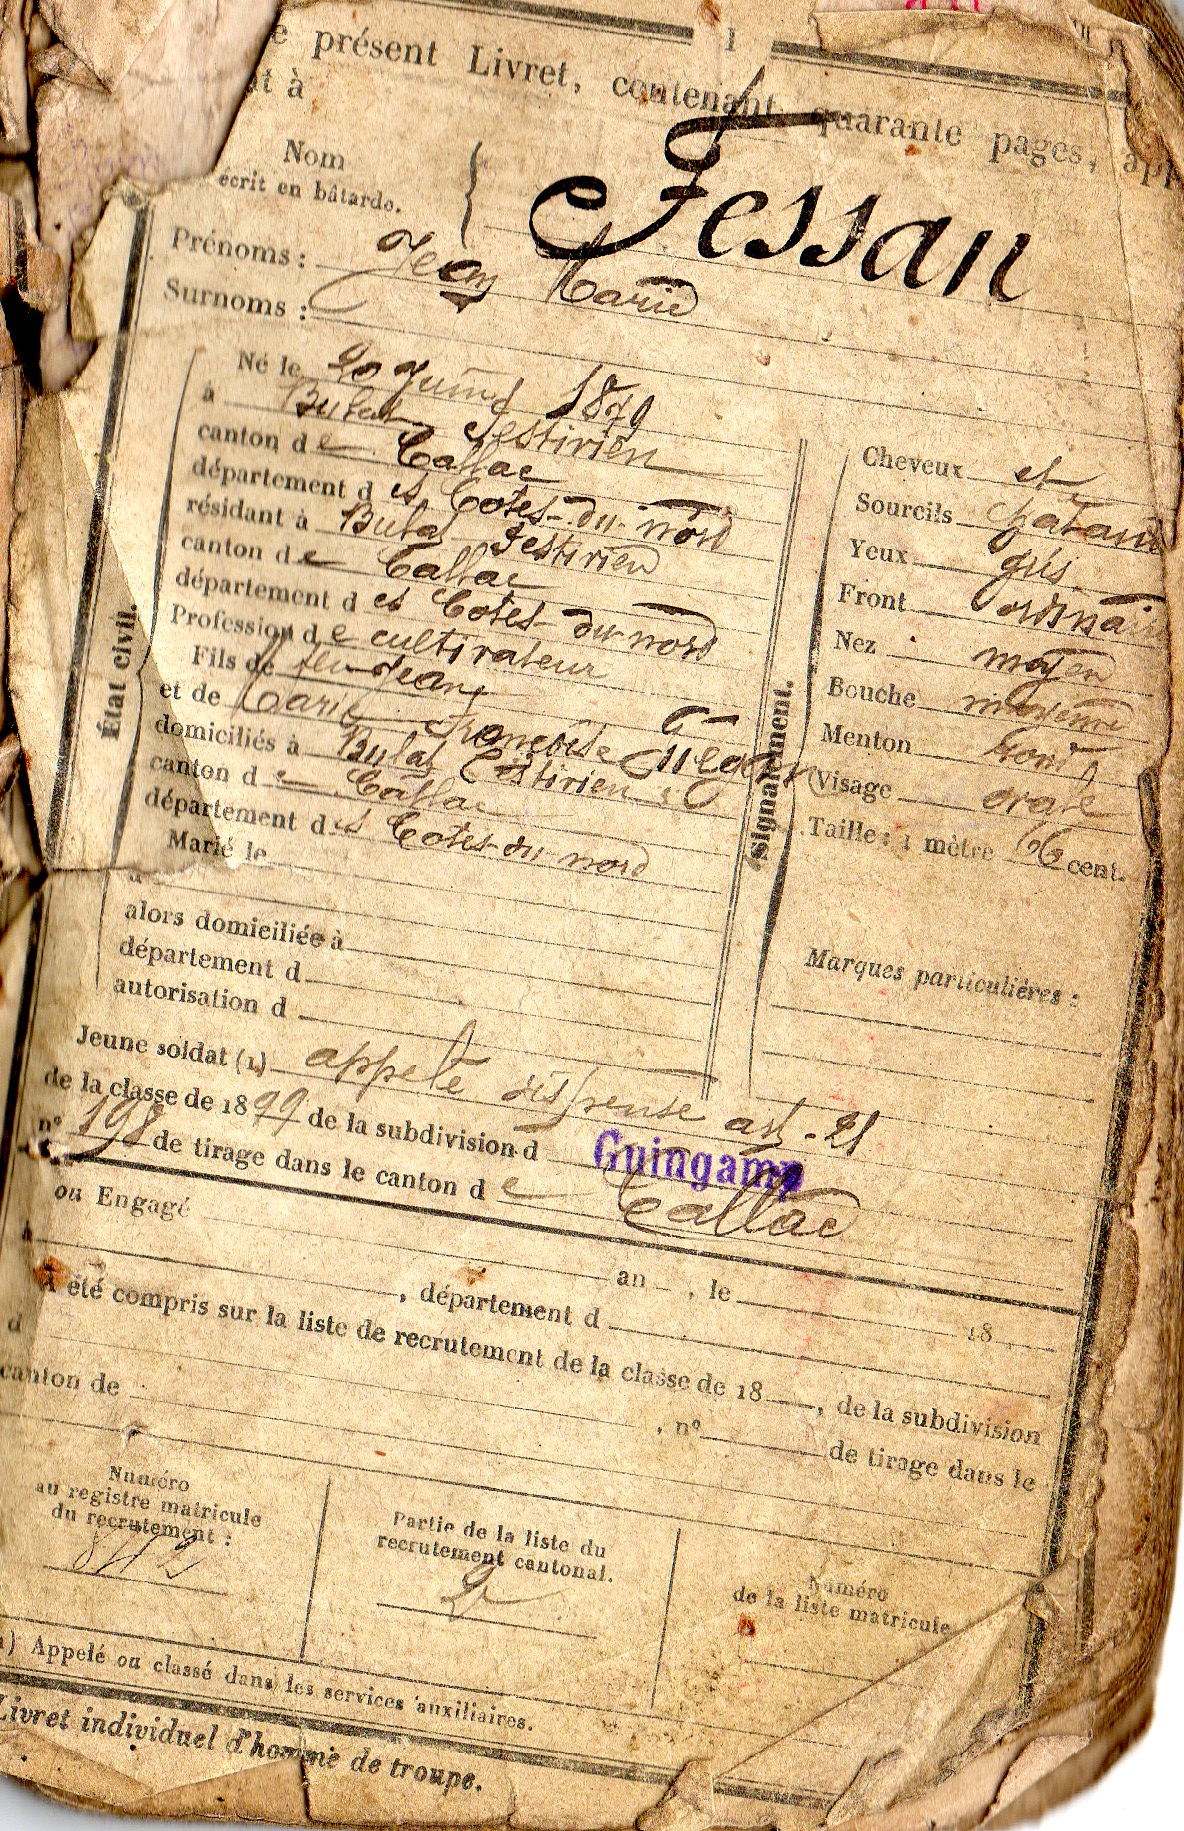 1
e présent Livret, contenant quarante pages, app
nt à
Nom
écrit en bâtarde.
Fessan
Prénoms : Jean Marie
Surnoms :
État civil.
Né le 20 Juin 1879
à Bulat Pestivien
canton de Callac
département des Côtes-du-nord
résidant à Bulat Pestivien
canton de Callac
département des Côtes-du-nord
Profession de cultivateur
Fils de feu Jean
et de Marie Françoise
domiciliés à Bulat Pestivien
canton de Callac
département des Côtes-du-nord
Marié le
à
alors domiciliée à
département d
autorisation d
Signalement.
Cheveux et
Sourcils chatain
Yeux gris
Front ordinaire
Nez moyen
Bouche moyenne
Menton rond
Visage ovale
Taille : 1 mètre 66 cent.
Marques particulières :
Jeune soldat (1) appelé dispensé art. 21
de la classe de 1899 de la subdivision d Guingamp
n° 198 de tirage dans le canton de Callac
ou Engagé
à an , le
, département d 18
A été compris sur la liste de recrutement de la classe de 18 , de la subdivision
d , n° de tirage dans le
canton de
Numéro
au registre matricule
du recrutement :
Partie de la liste du
recrutement cantonal.
2
Numéro
de la liste matricule
) Appelé ou classé dans les services auxiliaires.
Livret individuel d'homme de troupe.